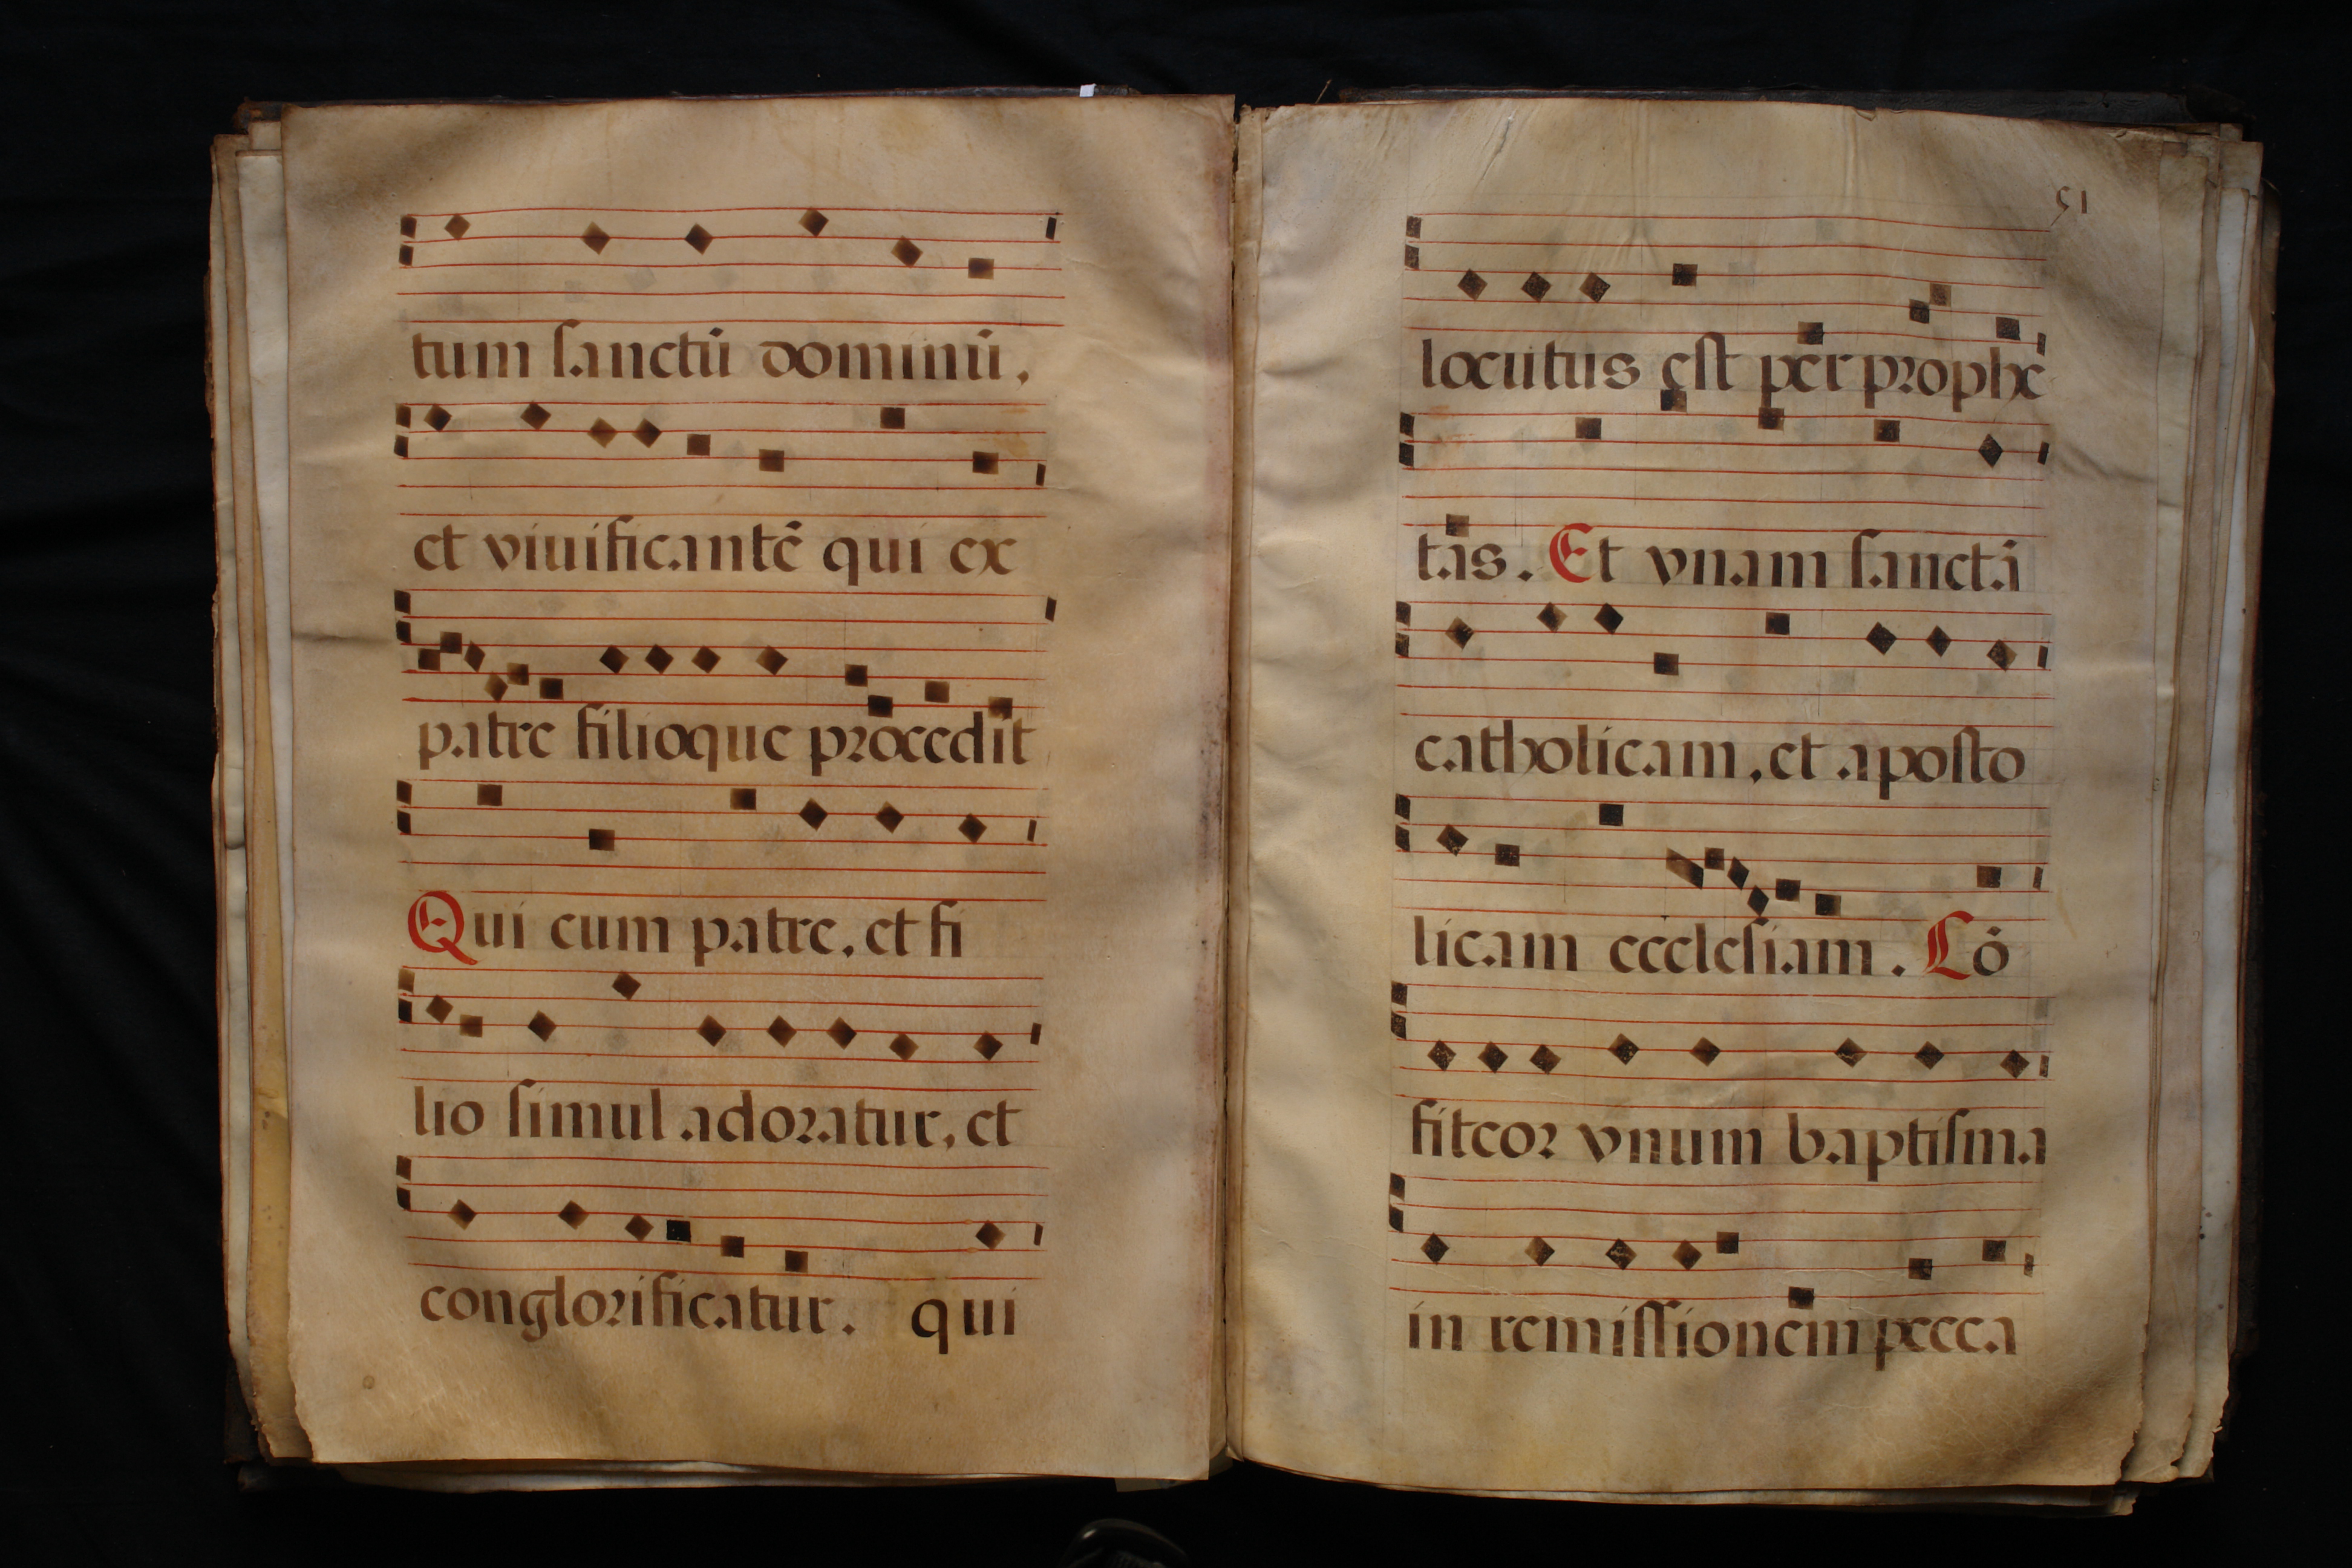 tum sanctū dominū.
et viuificantē qui ex
patre filioque procedit
Qui cum patre, et fi
lio simul adoratur, et
conglorificatur. qui
51
locutus est per prophe
tas. Et vnam sanctā
catholicam, et aposto
licam ecclesiam. Cō
fiteor vnum baptisma
in remissionem pecca